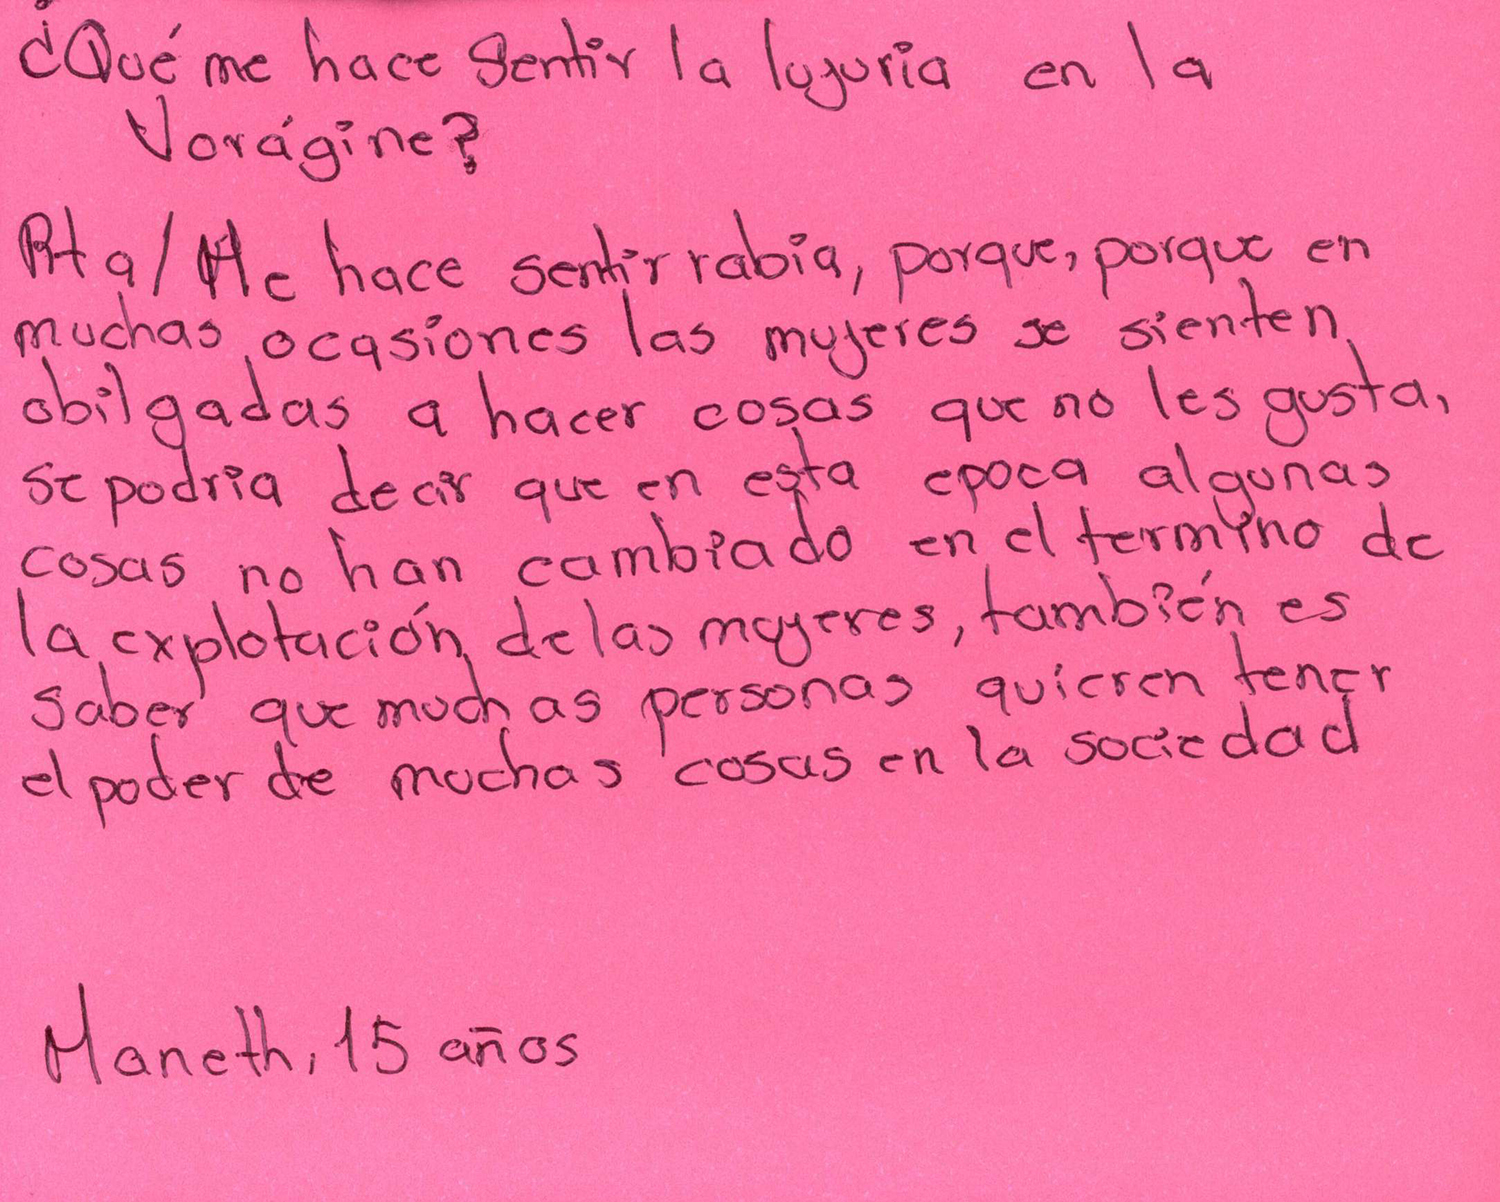 ¿Qué me hace Sentir la lujuria en la
Vorágine?
Rta/ Me hace sentir rabia, porque, porque en
muchas ocasiones las mujeres se sienten
obilgadas a hacer cosas que no les gusta,
se podria decir que en esta epoca algunas
cosas no han cambiado en el termino de
la explotación de las mujeres, también es
saber que muchas personas quieren tener
el poder de muchas cosas en la sociedad
Maneth, 15 años